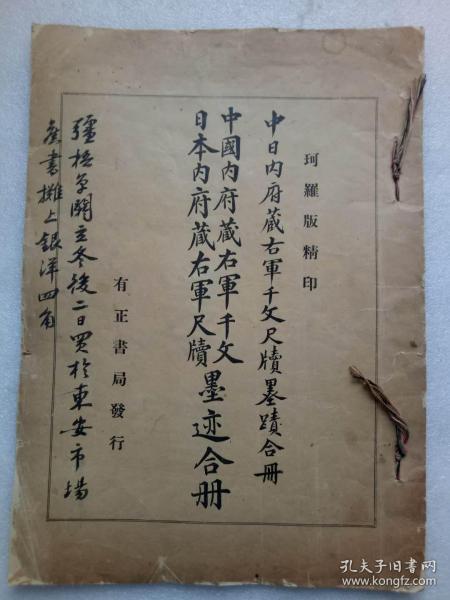 珂羅版精印
中日内府藏右軍千文尺牘墨蹟合冊
中國内府藏右軍千文
日本内府藏右軍尺牘
墨迹合册
有正書局發行
彊梧单閼立冬後二日買於東安市場
舊書攤上銀洋四角
孔夫子旧书网
www.kongfz.com